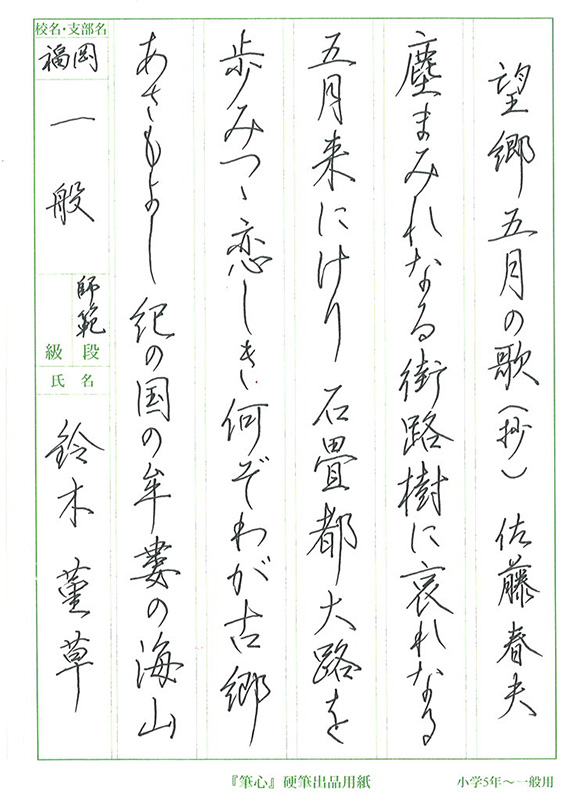 望郷五月の歌(抄) 佐藤春夫
塵まみれなる街路樹に哀れなる
五月来にけり 石畳都大路を
歩みつゝ恋しき何ぞわが古郷
あさもよし 紀の国の牟婁の海山
校名・支部名
福岡
一般
師範
段
級
氏名
鈴木菫草
『筆心』硬筆出品用紙
小学5年〜一般用